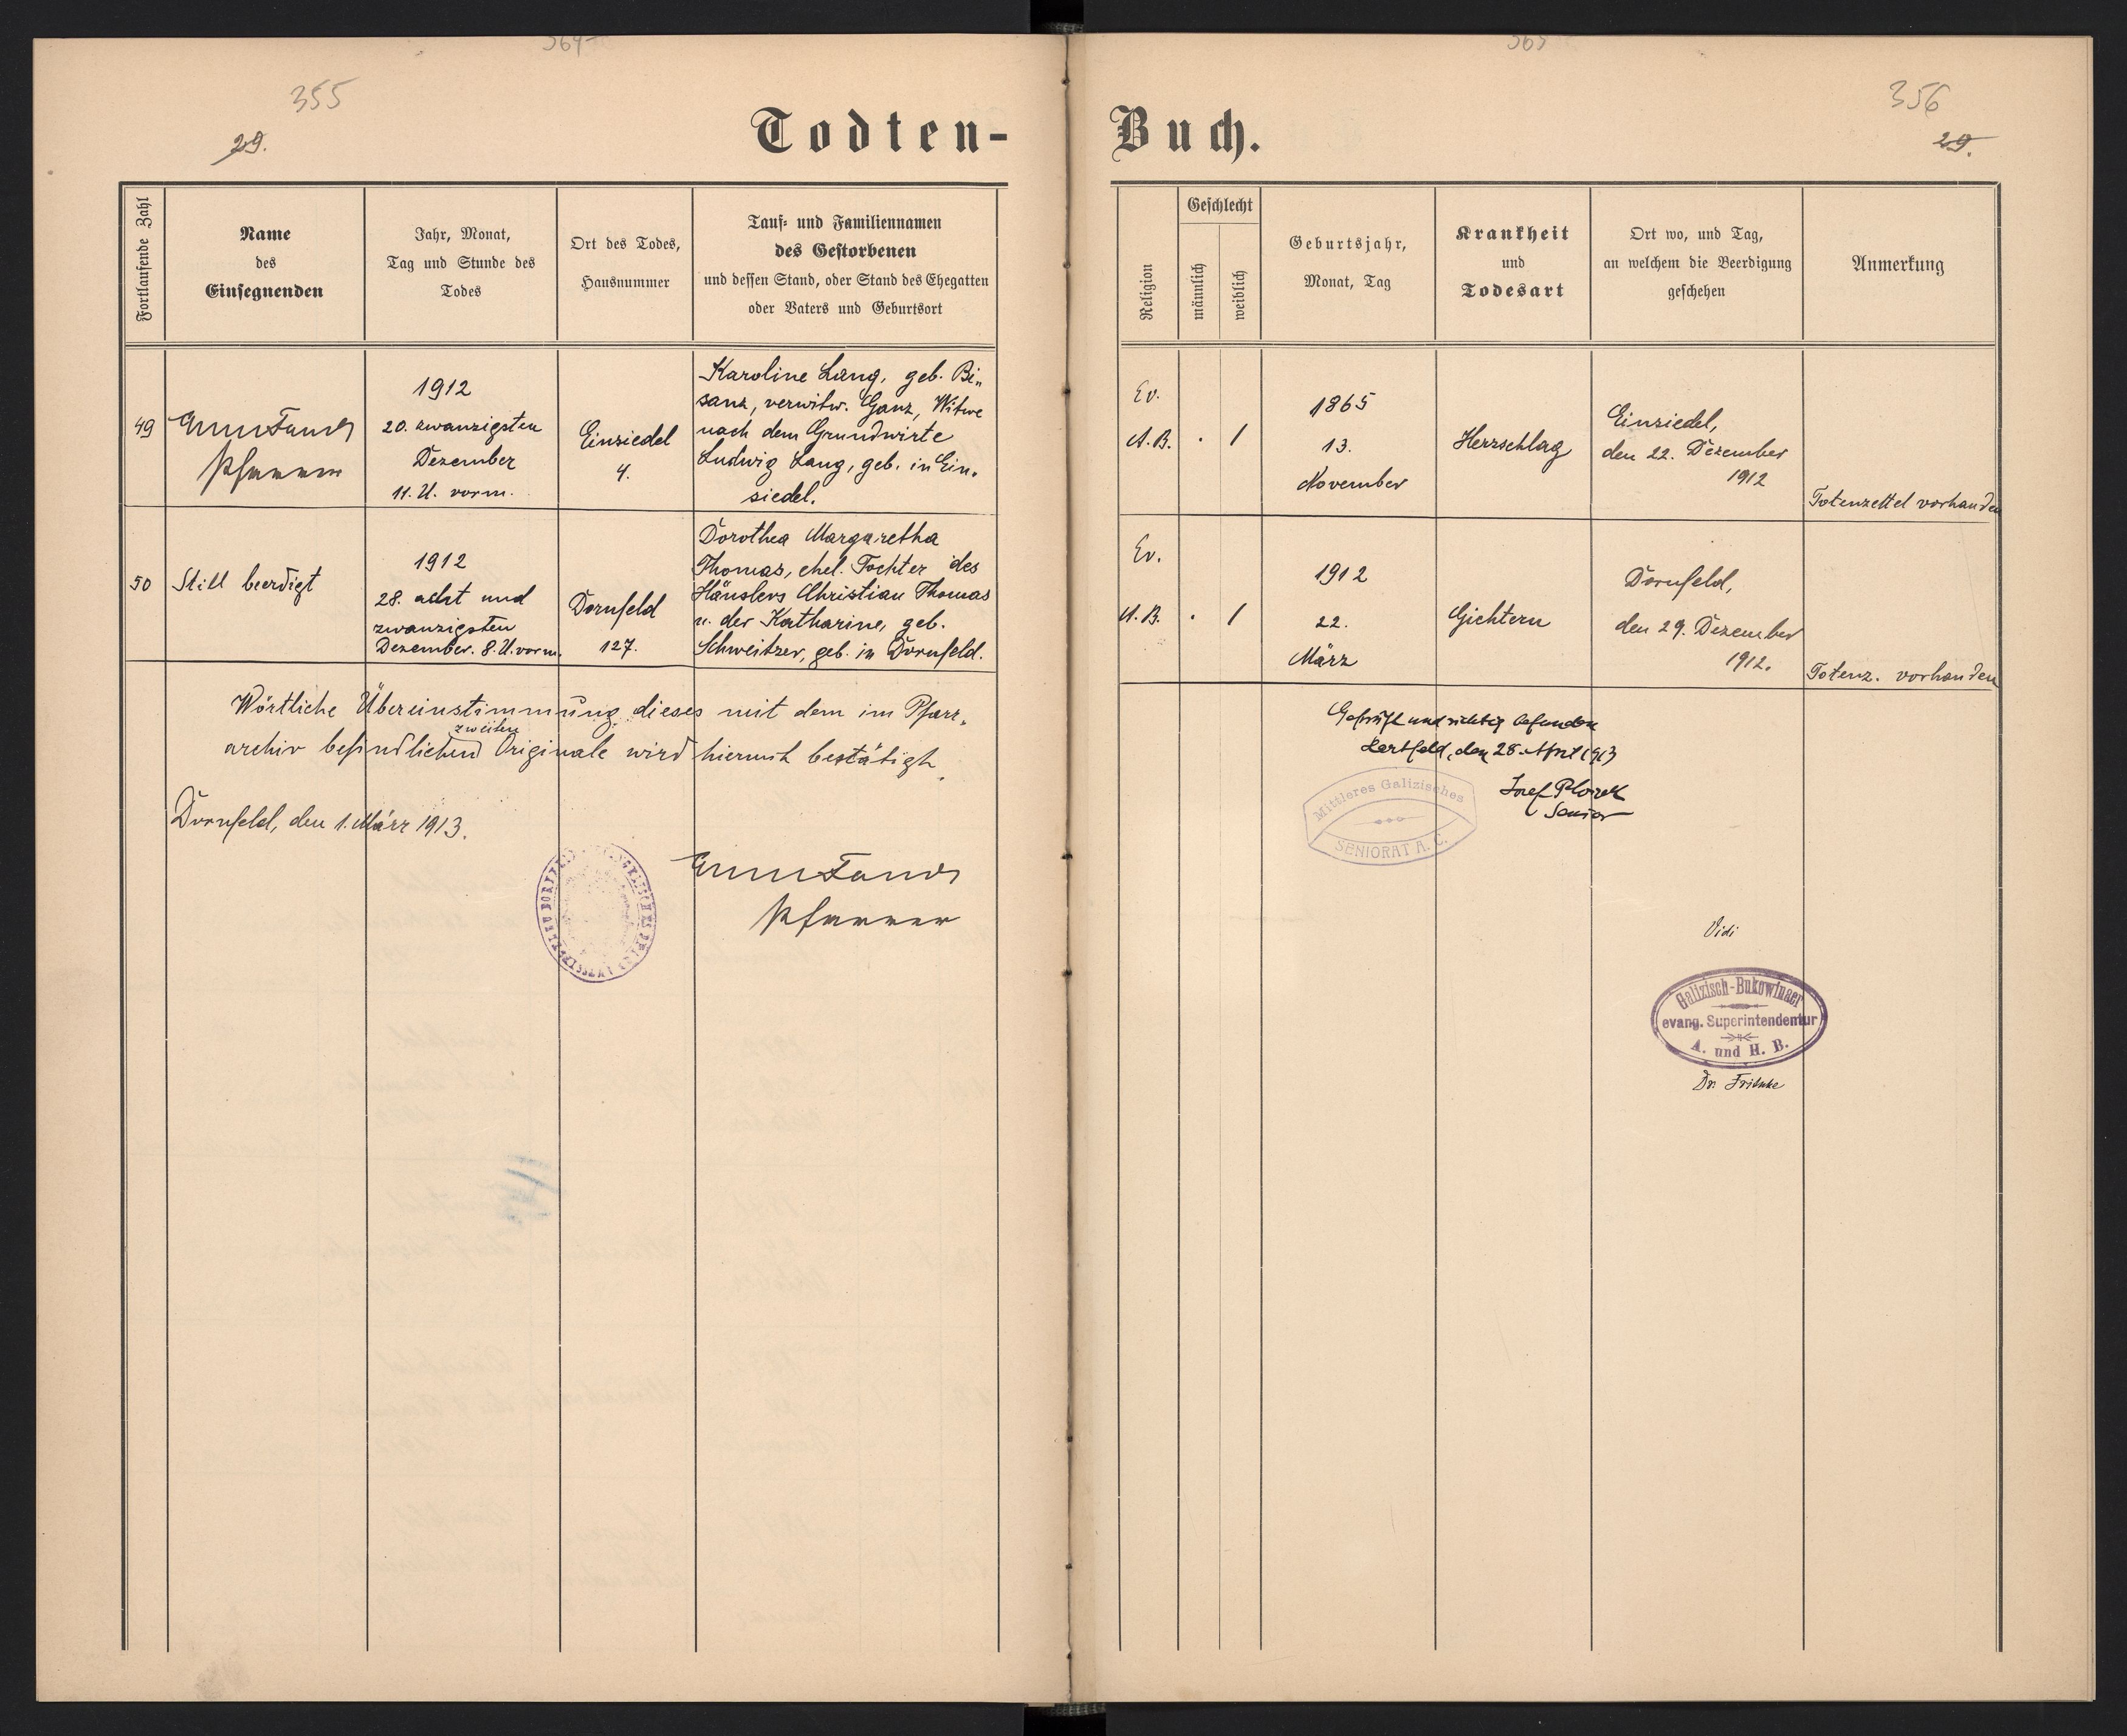 364
355
29.
Todten-
Fortlaufende Zahl
Name
des
Einsegnenden
Jahr, Monat,
Tag und Stunde des
Todes
Ort des Todes,
Hausnummer
Tauf- und Familiennamen
des Gestorbenen
und dessen Stand, oder Stand des Ehegatten
oder Vaters und Geburtsort
49
Pfarrer
1912
20. zwanzigsten
Dezember
11. U. vorm.
Einsiedel
4.
Karoline Lang, geb. Bi„
sanz, verwitw. Ganz, Witwe
nach dem Grundwirte
Ludwig Lang, geb. in Ein-
siedel.
50
Still beerdigt
1912
28. acht und
zwanzigsten
Dezember. 8. U. vorm.
Dornfeld
127.
Dorothea Margaretha
Thomas, ehel. Tochter des
Häuslers Christian Thomas
u. der Katharine, geb.
Schweitzer, geb. in Dornfeld.
Wörtliche Übereinstimmung dieses mit dem im Pfarr-
zweiten
archiv befindlichen Originale wird hiermit bestätigt.
Dornfeld, den 1. März 1913.
Pfarrer
365
356
29.
Buch.
Religion
Geschlecht
männlich
weiblich
Geburtsjahr,
Monat, Tag
Krankheit
und
Todesart
Ort wo, und Tag,
an welchem die Beerdigung
geschehen
Anmerkung
Ev.
A. B.
.
1
1865
13.
November
Herzschlag
Einsiedel,
den 22. Dezember
1912
Totenzettel vorhanden
Ev.
A. B.
.
1
1912
22.
März
Gichtern
Dornfeld,
den 29. Dezember
1912.
Totenz. vorhanden
Geprüft und richtig befunden
den 28. April 1913
Josef
Senior
Mittleres Galizisches
SENIORAT A. C.
Vidi
Galizisch-Bukowinaer
evang. Superintendentur
A. und H. B.
Dr. Fritsche